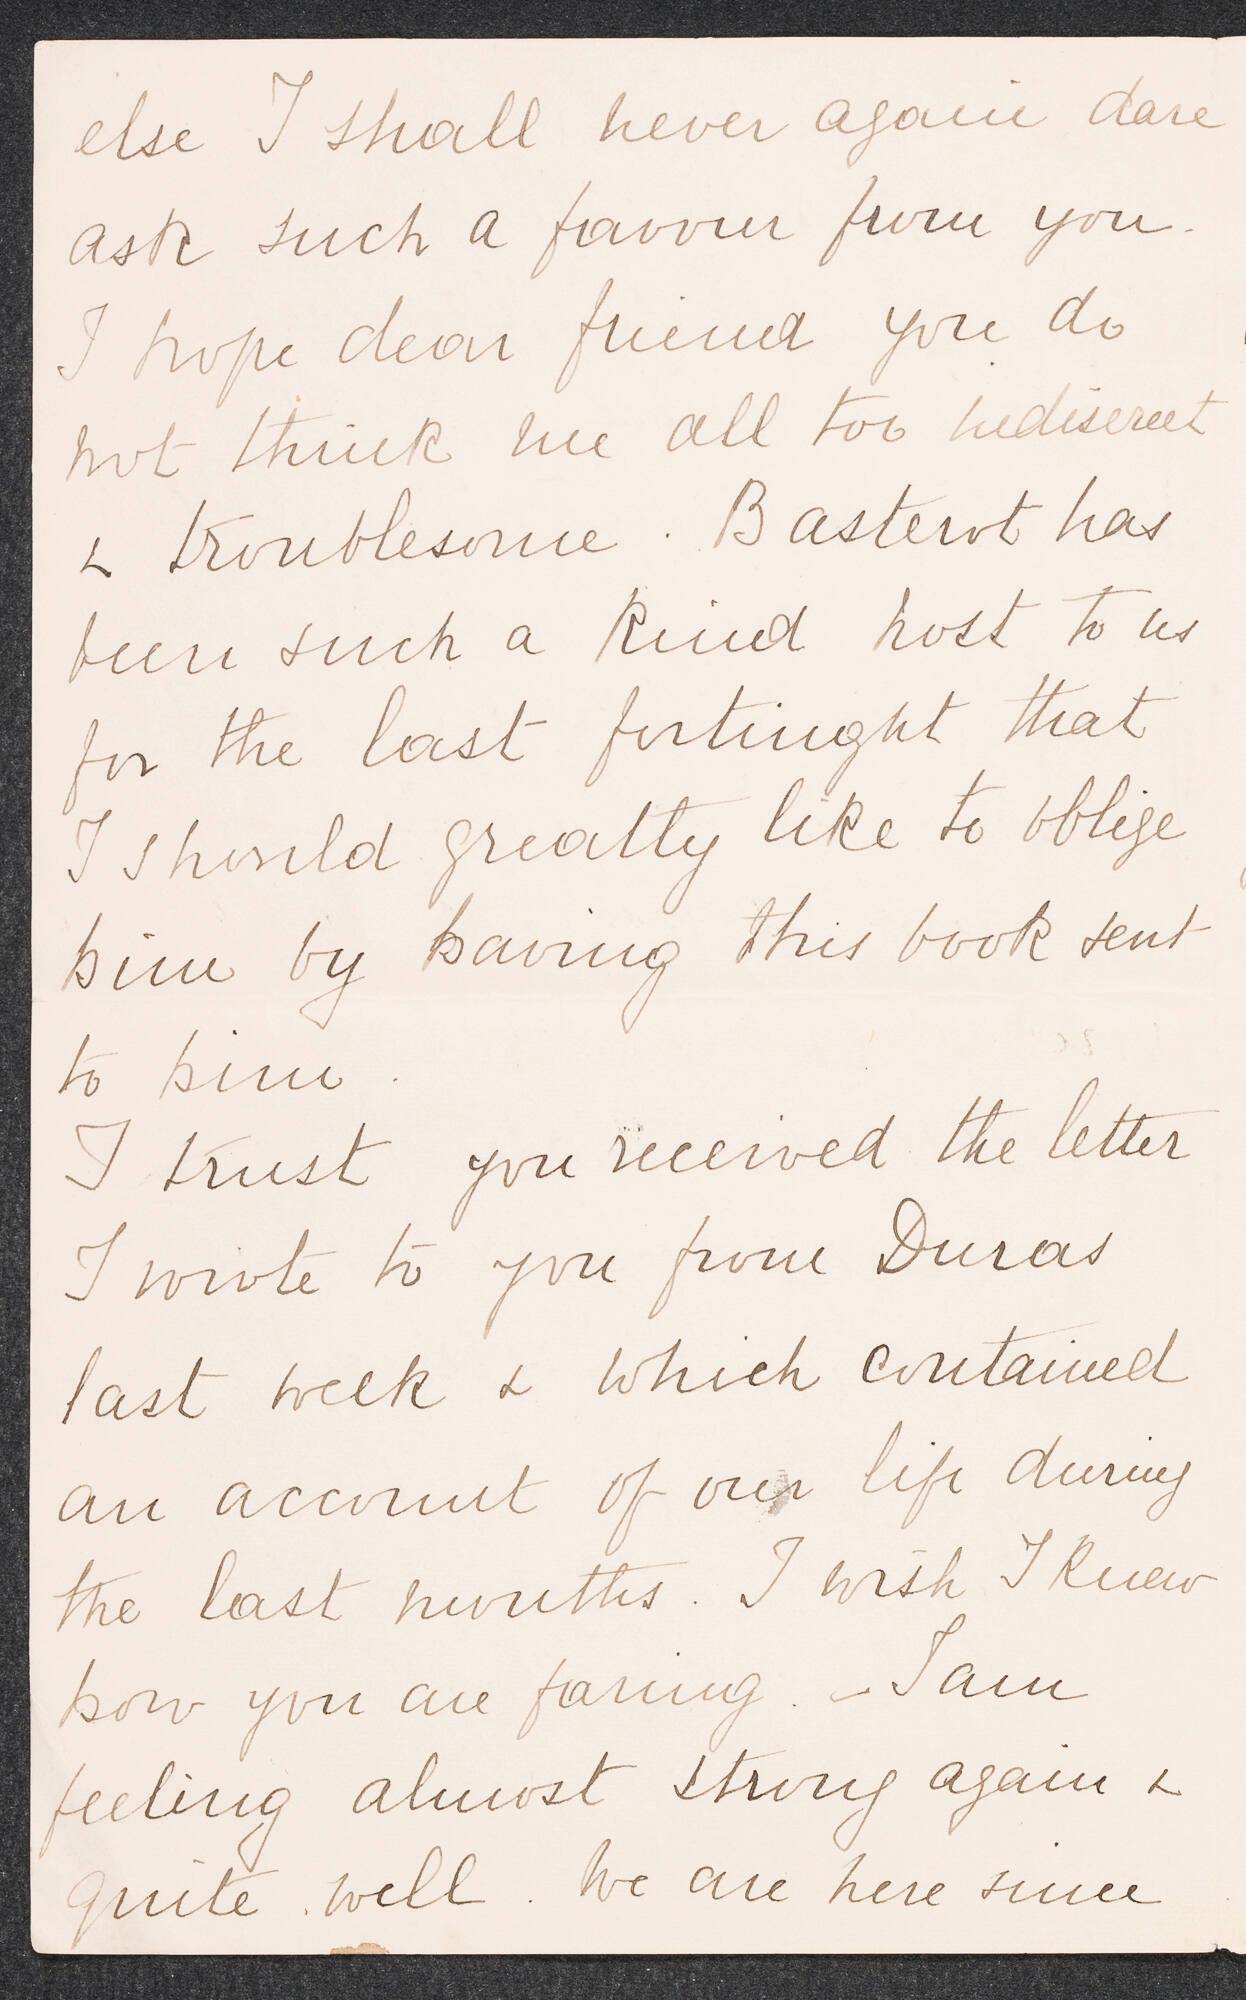 else I shall never again dare
ask such a favour from you.
I hope dear friend you do
not think me all too indiscreet
& troublesome. Basterot has
been such a kind host to us
for the last fortinght that
I should greatly like to oblige
him by having this book sent
to him.
I trust you received the letter
I wrote to you from Duras
last week & which contained
an account of our life during
the last months. I wish I knew
how you are faring. – I am
feeling almost strong again &
quite well. We are here since